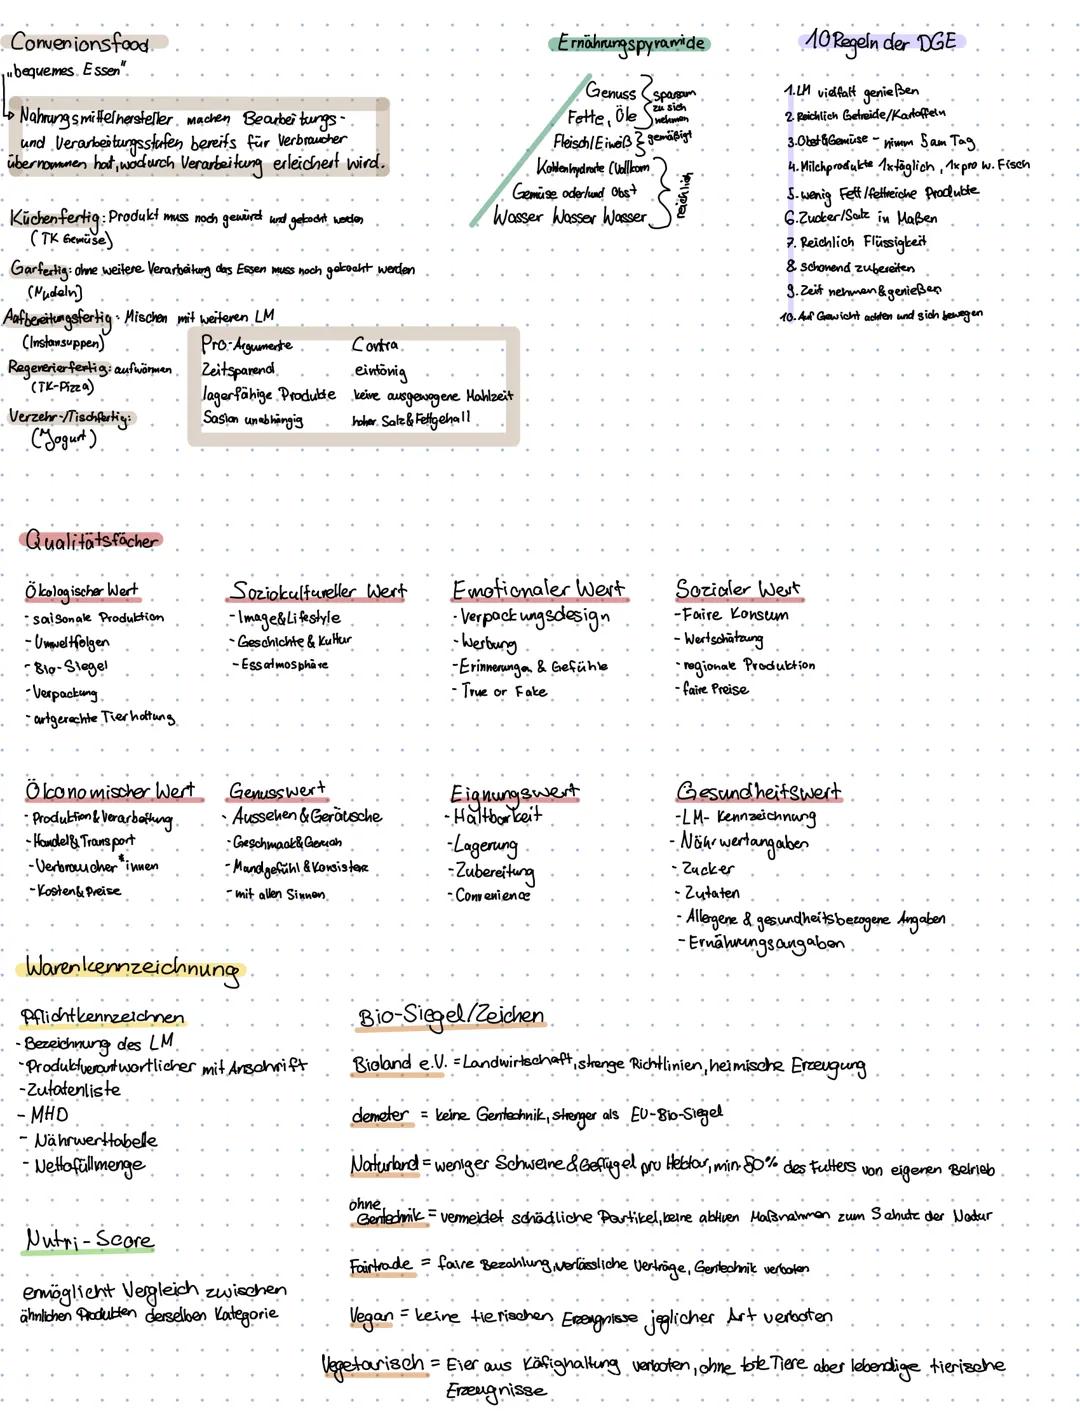 Convenionsfood
„bequemes Essen"
Nahrungsmittelhersteller machen Bearbeitungs-
und Verarbeitungsstufen bereits für Verbraucher
übernommen hat, wodurch Verarbeitung erleichert wird.
Küchenfertig: Produkt muss noch gewürzt und gekocht werden
(TK Gemüse)
Garfertig: ohne weitere Verarbeitung das Essen muss noch gekocht werden
(Nudeln)
Aufbereitungsfertig: Mischen mit weiteren LM
(Instansuppen)
Regenerierfertig: aufwärmen
(TK-Pizza)
Verzehr-/Tischfertig:
(Jogurt)
Pro-Argumente Contra
Zeitsparend eintönig
lagerfähige Produkte keine ausgewogene Mahlzeit
Saslon unabhängig hoher Salz&Fettgehalt
Ernährungspyramide
Genuss
Fette, Öle
sparsam
zu sich
nehmen
Fleisch/Eiweiß gemäßigt
Kohlenhydrate (Vollkorn
Gemüse oder/und Obst
Wasser Wasser Wasser
reichlich
10 Regeln der DGE
1. LM vielfalt genießen
2. Reichlich Getreide/Kartoffeln
3. Obst&Gemüse - nimm 5 am Tag
4. Milchprodukte 1x täglich, 1x pro w. Fisch
5. wenig Fett/fettreiche Produkte
6. Zucker/Salz in Maßen
7. Reichlich Flüssigkeit
8. schonend zubereiten
9. Zeit nehmen&genießen
10. Auf Gewicht achten und sich bewegen
Qualitätsfächer
Ökologischer Wert
- saisonale Produktion
- Umweltfolgen
- Bio-Siegel
- Verpackung
- artgerechte Tierhaltung
Soziokultureller Wert
- Image&Lifestyle
- Geschichte & Kultur
- Essatmosphäre
Emotionaler Wert
- Verpackungsdesign
- Werbung
- Erinnerungen & Gefühle
- True or Fake
Sozialer Wert
- Faire Konsum
- Wertschätzung
- regionale Produktion
- faire Preise
Ökonomischer Wert
- Produktion & Verarbeitung
- Handel & Transport
- Verbraucher*innen
- Kosten & Preise
Genusswert
- Aussehen & Geräusche
- Geschmack & Geruch
- Mundgefühl & Konsistenz
- mit allen Sinnen
Eignungswert
- Haltbarkeit
- Lagerung
- Zubereitung
- Convenience
Gesundheitswert
- LM- Kennzeichnung
- Nährwertangaben
- Zucker
- Zutaten
- Allergene & gesundheitsbezogene Angaben
- Ernährungsangaben
Warenkennzeichnung
Pflichtkennzeichnen
- Bezeichnung des LM
- Produktverantwortlicher mit Anschrift
- Zutatenliste
- MHD
- Nährwerttabelle
- Nettofüllmenge
Nutri-Score
ermöglicht Vergleich zwischen
ähnlichen Produkten derselben Kategorie
Bio-Siegel/Zeichen
Bioland e.V. = Landwirtschaft, strenge Richtlinien, heimische Erzeugung
demeter = keine Gentechnik, strenger als EU-Bio-Siegel
Naturland = weniger Schweine & Geflügel pro Hektar, min. 50% des Futters von eigenen Betrieb
ohne
Gentechnik = vermeidet schädliche Partikel, keine aktiven Maßnahmen zum Schutz der Natur
Fairtrade = faire Bezahlung, verlässliche Verträge, Gentechnik verboten
Vegan = keine tierischen Erzeugnisse jeglicher Art verboten
Vegetarisch = Eier aus Käfighaltung verboten, ohne tote Tiere aber lebendige tierische
Erzeugnisse